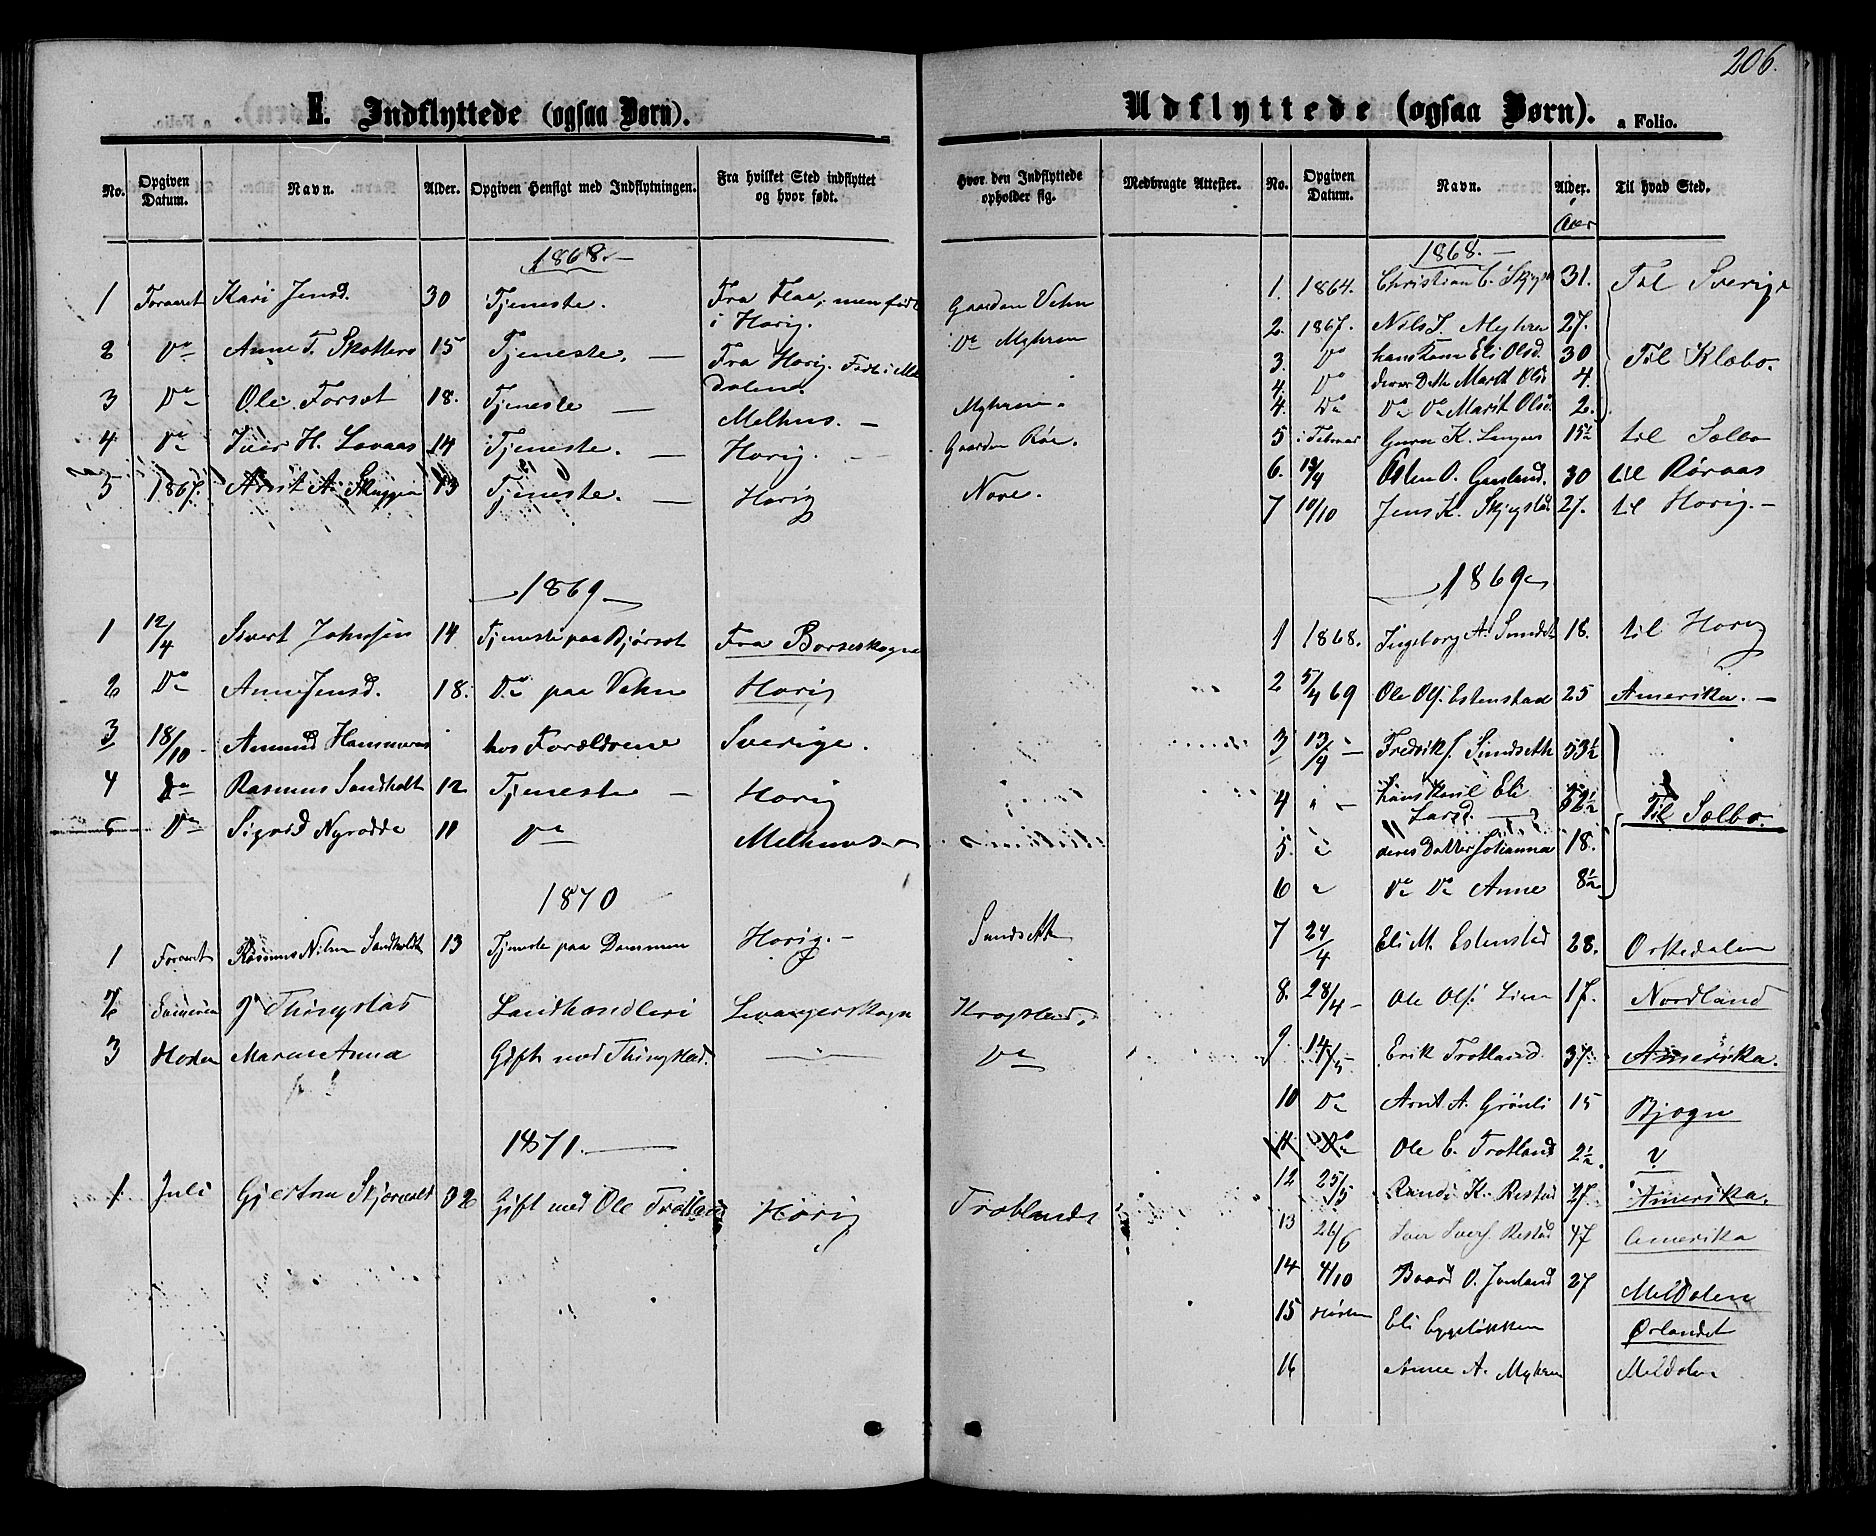 206.
E. Indflyttede (ogsaa Børn).
No. Opgiven Datum. Navn. Alder. Opgiven Hensigt med Indflytningen. Fra hvilket Sted indflyttet og hvor født. Hvor den Indflyttede opholder sig. Medbragte Attester.
1868.
1 Foraaret Kari Jensd. 30 Tjeneste. Fra Flaa, men født i Horig. Gaarden Vehn
2 Do Anne T. Skotterø 15 Tjeneste. Fra Horig. Født i Meldalen. Do Myhren
3 Do Ole Forsøt 18. Tjeneste Melhus. Myhren.
4 Do Iver H. Lovaas 14 Tjeneste. Horig. Gaarden Røe.
5 1867. Arnt A. 13 Tjeneste. Horig Nove.
1869
1 12/4 Sivert Johnsen 14 Tjeneste paa Bjørsøt Fra Børseskogn
2 Do Anne Jensd. 18. Do paa Vehn Horig
3 18/10 Amund Hammeraas hos Forældrene Sverige.
4 Do Rasmus Sandholt 12 Tjeneste Horig
5 Do Sigrid Nyrødde 11 Do Melhuus
1870
1 Foraaret Rasmus Nilsen Sandholdt 13 Tjeneste paa Dammen Horig. Sundseth
2 J. Thingstad Landhandleri Levangerskogn Krogstad.
3 Høsten Maren Anna Gift med Thingstad. Do
1871.
1 Juli Gjertru Skjærvold 32 Gift med Ole Trøtland Horig Trøtlands
Udflyttede (ogsaa Børn). a Folio.
No. Opgiven Datum. Navn. Alder. Til hvad Sted.
Aar
1868.
1. 1864. Christian E. 31. Til Sverige
2. 1867. Nils J. Myhren 27.
3. Do hans Kone Eli Olsd. 30 Til Klæbo.
4. Do deres Dttr Marit Olsd 4.
4. Do Do Do Marit Olsd. 2.
5 i Februar Guru K. 15½ til Sælbo
6. 13/4 Østen O. 30 til Røraas
7 10/10 Jens K. 27. til Horig.
1869
1 1868. Ingeborg A. Sundet 18. til Horig
2 5/4 69 Ole Ols. Estenstad 25 Amerika.
3 13/4 Fredrik J. Sundseth 53½
4 " hans Kone Eli Larsd. 52½ Til Sælbo.
5. " deres Datter Johanna 18.
6 " Do Do Anne 8½
7 24/4 Eli M. Estenstad 28. Orkedalen
8. 28/4 Ole Ols. Lien 17. Nordland
9. 14/5 Erik Trøtland 37. Amerika.
10 Do Arnt A. Grønli 15 Bjøgn
11 Do Ole E. Trøtland 2½. ?
12 25/5 Randi K. Restad 27. Amerika.
13 26/6 Iver Ivers. Restad 47 Amerika
14 4/10 Baard O. 27 Meldalen
15 Høsten Eli Eggeløkken Ørlandet
16 Anne A. Myhren Meldalen